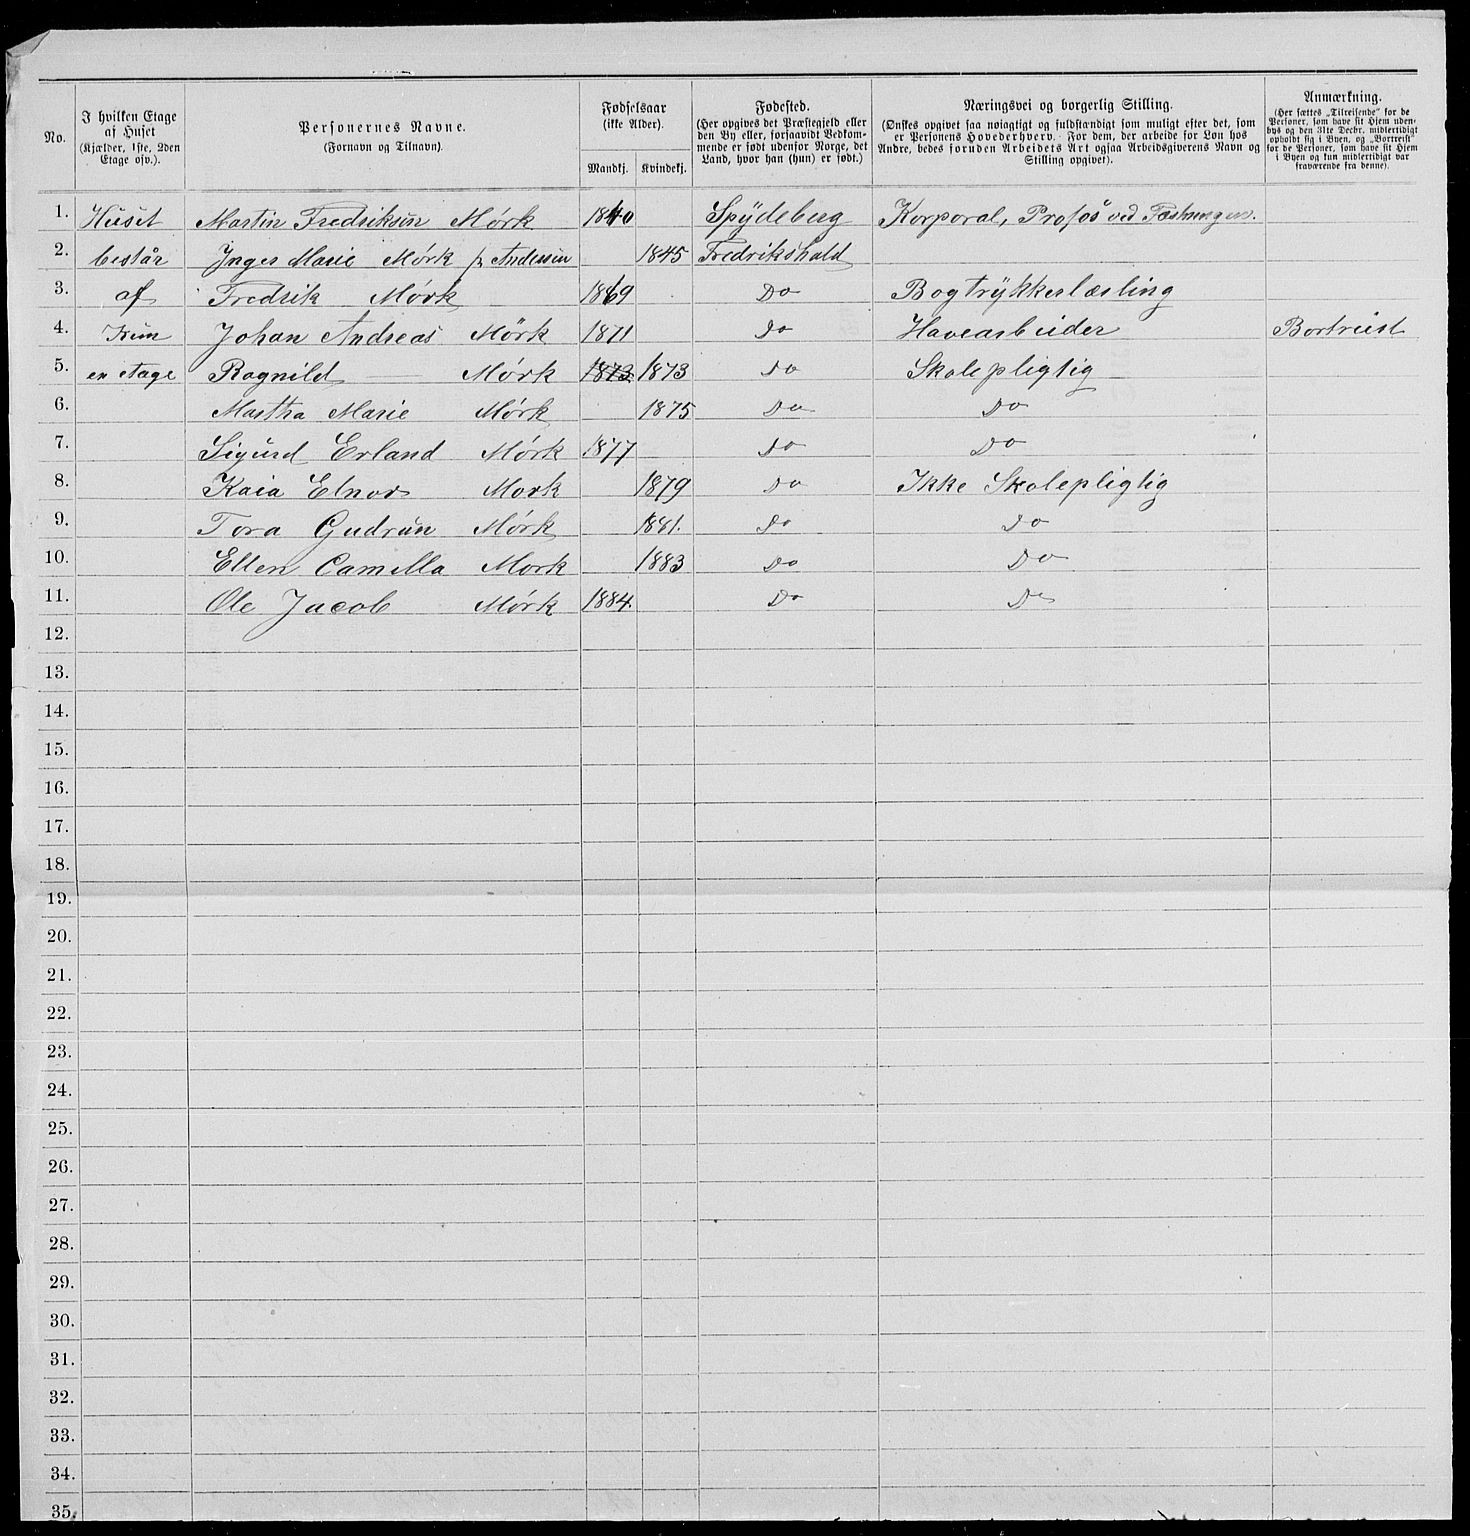 No.
I hvilken Etage
af Huset
(Kjælder, 1ste, 2den
Etage osv.).
Personernes Navne.
(Fornavn og Tilnavn).
Fødselsaar
(ikke Alder).
Mandkj. Kvindekj.
Fødested.
(Her opgives det Præstegjeld eller
den By eller, forsaavidt Vedkom-
mende er født udenfor Norge, det
Land, hvor han (hun) er født.)
Næringsvei og borgerlig Stilling.
(Ønskes opgivet saa nøiagtigt og fuldstændigt som muligt efter det, som
er Personens Hovederhverv. For dem, der arbeide for Løn hos
Andre, bedes foruden Arbeidets Art ogsaa Arbeidsgiverens Navn og
Stilling opgivet).
Anmærkning.
(Her sættes „Tilreisende“ for de
Personer, som have sit Hjem uden-
bys og den 31te Decbr. midlertidigt
opholdt sig i Byen, og „Bortreist“
for de Personer, som have sit Hjem
i Byen og kun midlertidigt var
fraværende fra denne).
1. Huset Martin Fredriksen Mørk 1840 Spydeberg Korporal, Profos ved Fæstningen.
2. består Inger Marie Mørk f. Andersen 1845 Fredrikshald
3. af Fredrik Mørk 1869 Do Bogtrykkerlærling
4. Kun Johan Andreas Mörk 1871 Do Havearbeider Bortreist
5. en etage Ragnild Mørk 1873 1873 Do Skolepligtig
6. Martha Marie Mørk 1875 Do Do
7. Sigurd Erland Mørk 1877 Do Do
8. Kaia Elnor Mork 1879 Do Ikke Skolepligtig
9. Tora Gudrun Mørk 1881. Do Do
10. Ellen Camilla Mork 1883 Do Do
11. Ole Jacob Mørk 1884. Do Do
12.
13.
14.
15.
16.
17.
18.
19.
20.
21.
22.
23.
24.
25.
26.
27.
28.
29.
30.
31.
32.
33.
34.
35.